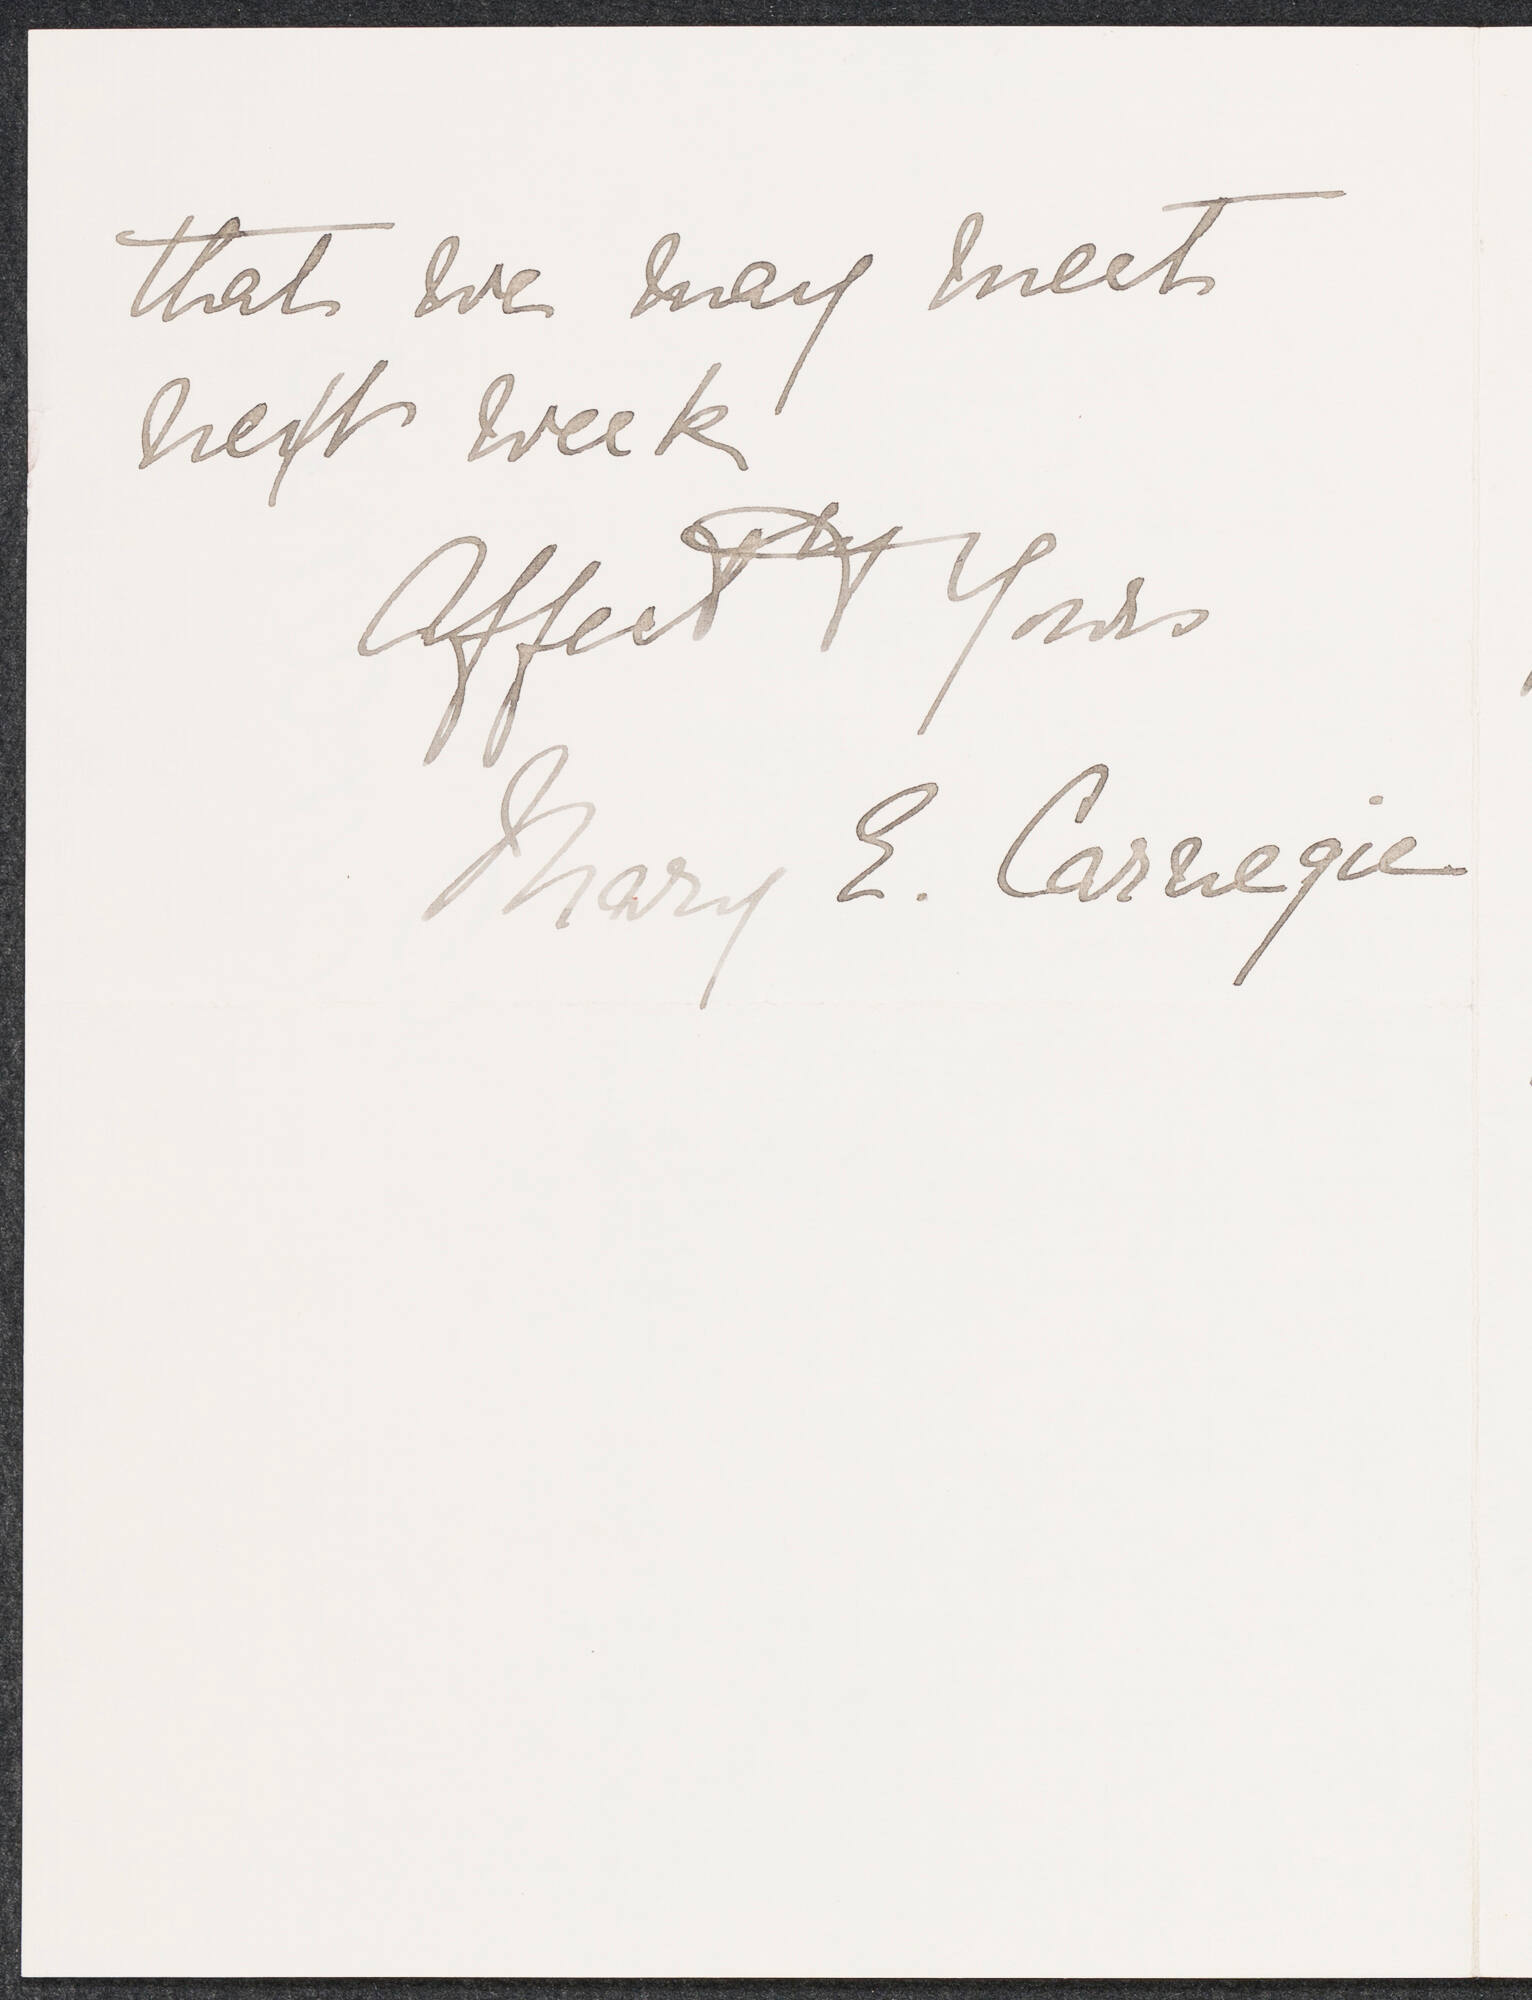 that we may meet
next week
Affectly Yours
Mary E. Carnegie